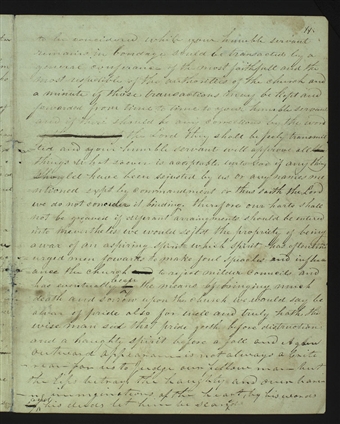 to be considered while your humble servant
remained in bondage should be transacted by a
general conference of the most faithfull and the
most respictible of the authorities of the church and
a minute of those transactions may be kept and
forwarded from time to time to your humble servant
and if there should be any corrections by the word
of the Lord they shall be freely transmi
ted and your humble servant will approve all
things so ever is acceptable unto God if any thing
should have been sejusted by us or any names men
ditioned expt by commandment or thus saith the Lord
we do not concider it binding therefore our harts shall
not be greaved if diferant arraingments should be entered
into nevertheless we would sejest the propriety of being
awar of an aspiring spirit which spirit has oftentimes
urged men forwards to make foul speaches and influ
ance the church to reject milder councils and
has eventually been the means of bringing much
death and sorrow upon the church we would say be
awar of pride also for well and truly hath the
wise man sed that pride goeth before distruction
and a haughty spirit before a fall and Again
outward appearance is not always a Criterion
for us to judge our fellow man but
the lips betray the haughty and over baring
immaginations of the heart, by his words
his deeds let him be